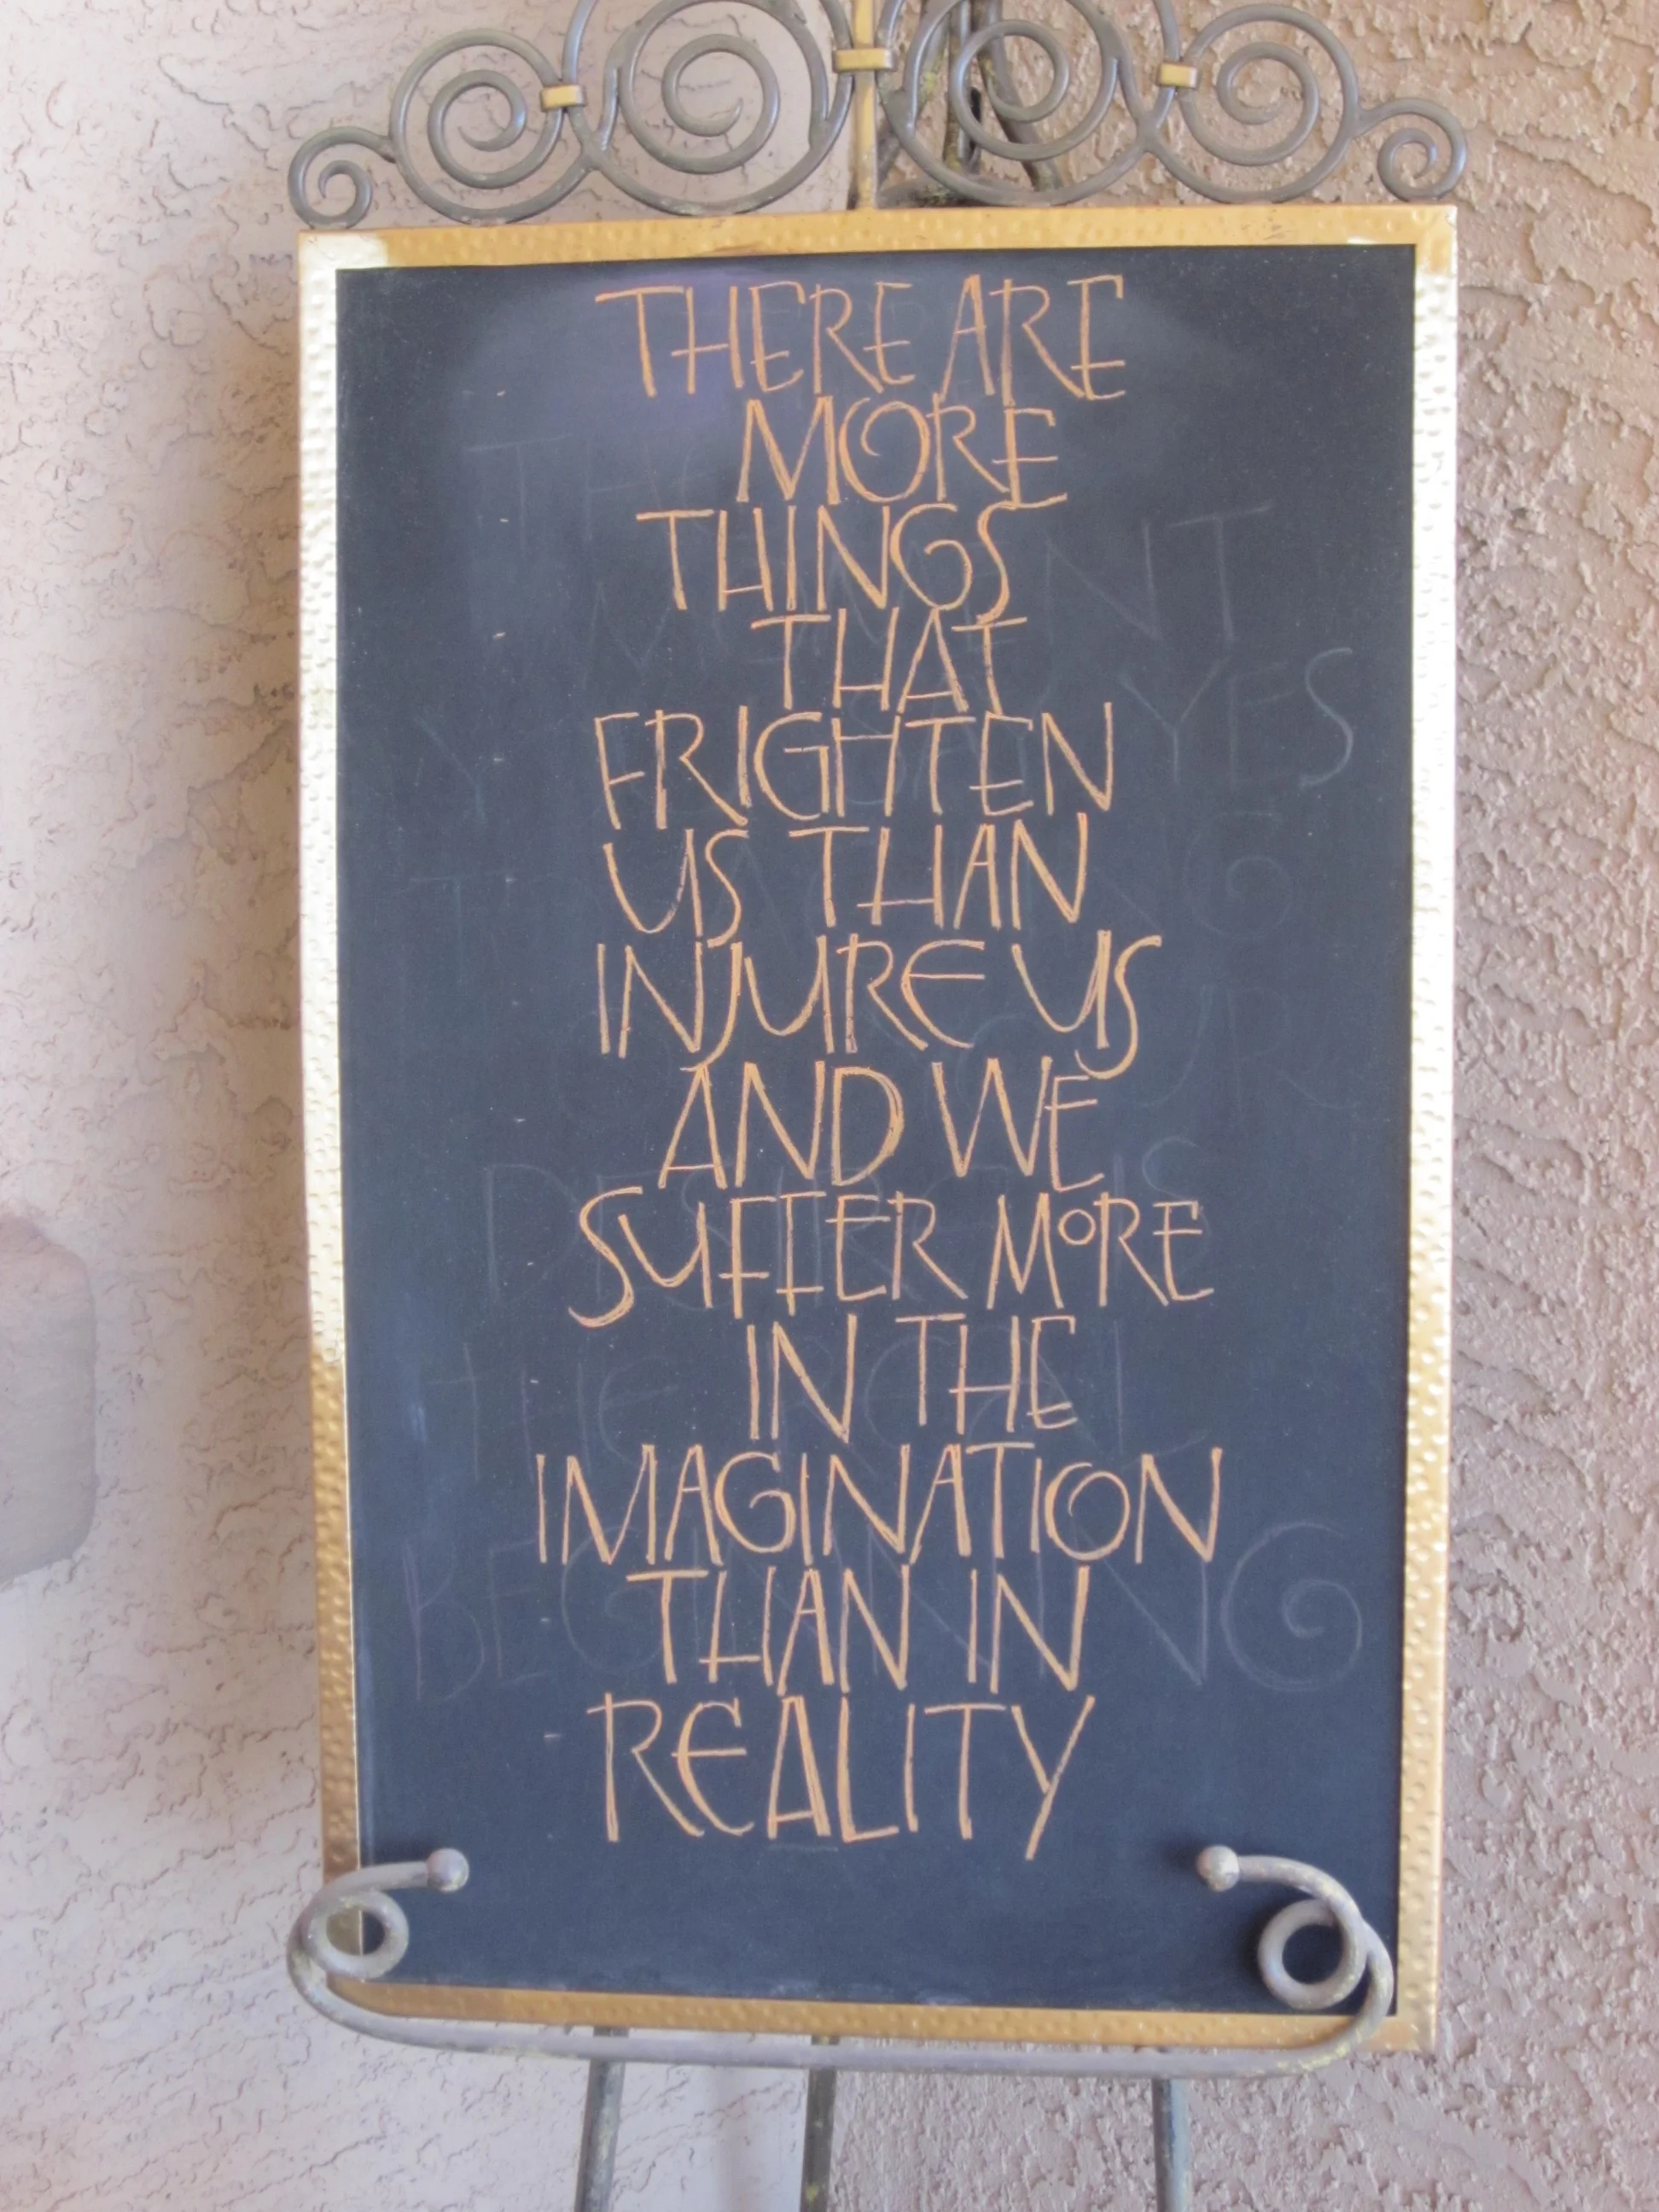 THERE ARE
MORE
THINGS
THAT
FRIGHTEN
US THAN
INJURE US
AND WE
SUFFER MORE
IN THE
IMAGINATION
THAN IN
REALITY